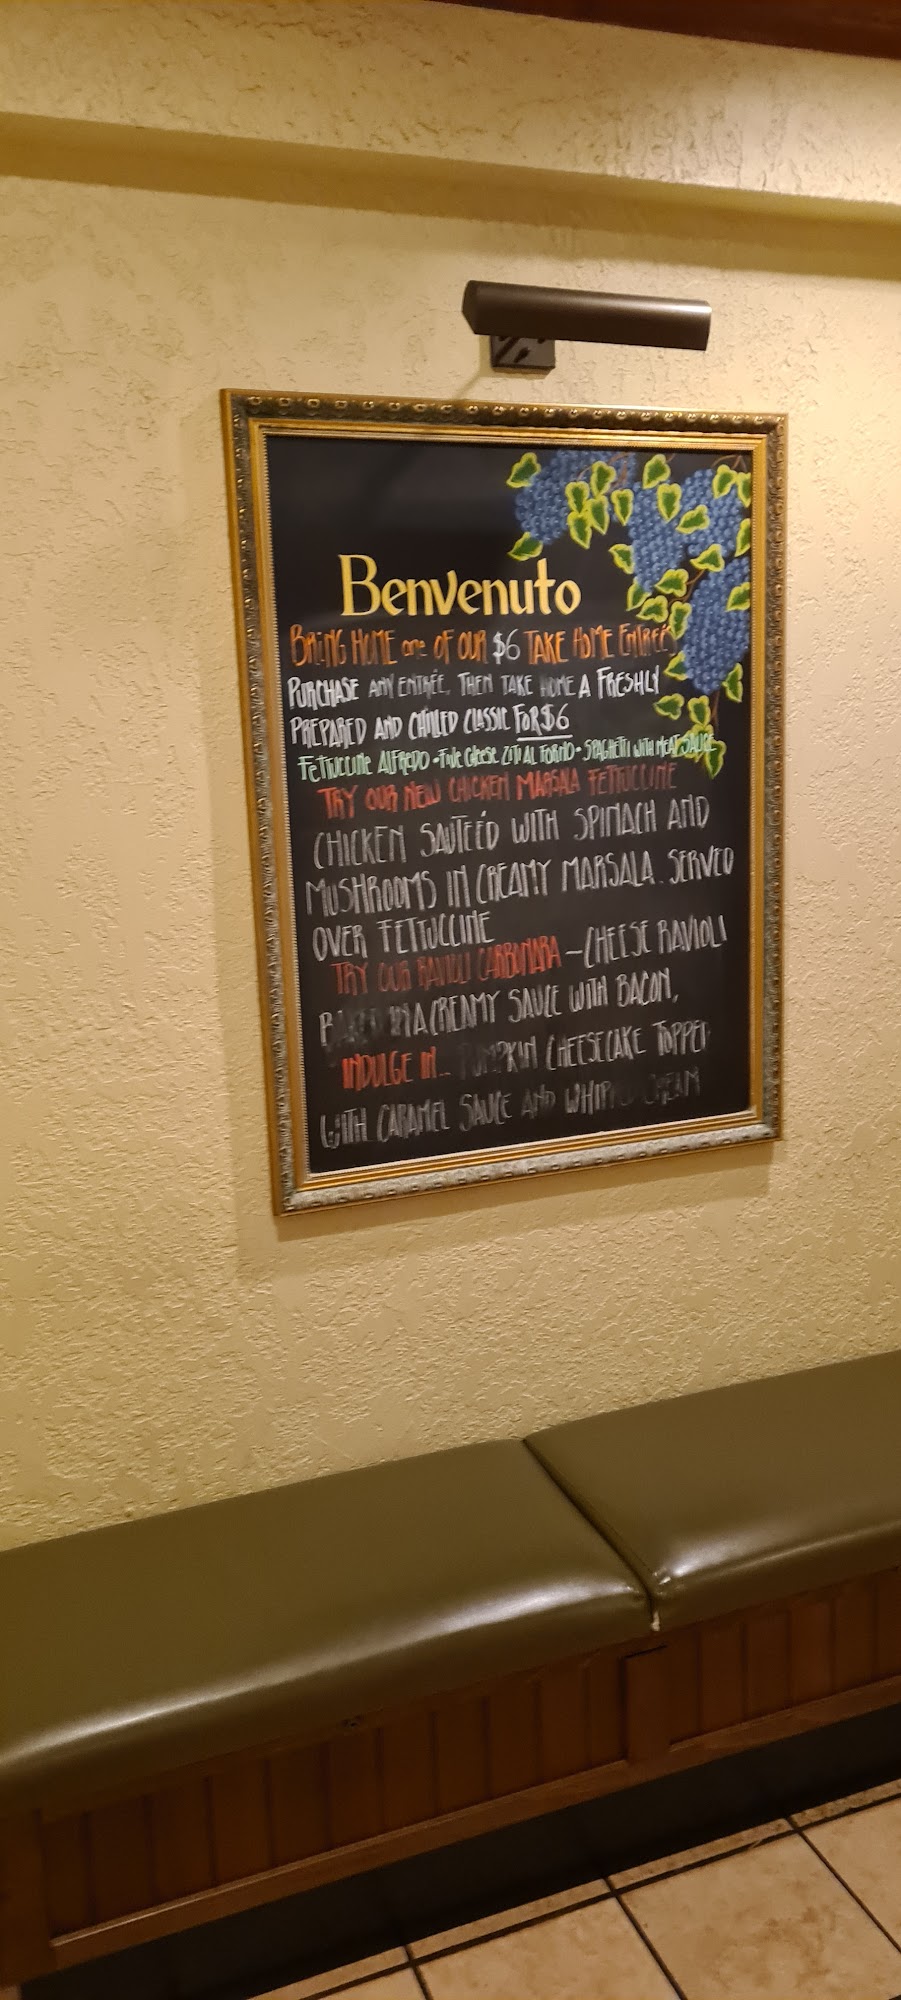 Benvenuto
BRING HOME one OF OUR $6 TAKE HOME ENTREÉS
PURCHASE ANY ENTRÉE, THEN TAKE HOME A FRESHLY
PREPARED AND CHILLED CLASSIC FOR $6
FETTUCCINE ALFREDO • FIVE CHEESE ZITI AL FORNO • SPAGHETTI WITH MEAT SAUCE
TRY OUR NEW CHICKEN MARSALA FETTUCCINE
CHICKEN SAUTEÉD WITH SPINACH AND
MUSHROOMS IN CREAMY MARSALA. SERVED
OVER FETTUCCINE
TRY OUR RAVIOLI CARBONARA – CHEESE RAVIOLI
BAKED IN A CREAMY SAUCE WITH BACON,
INDULGE IN... PUMPKIN CHEESECAKE TOPPED
WITH CARAMEL SAUCE AND WHIPPED CREAM